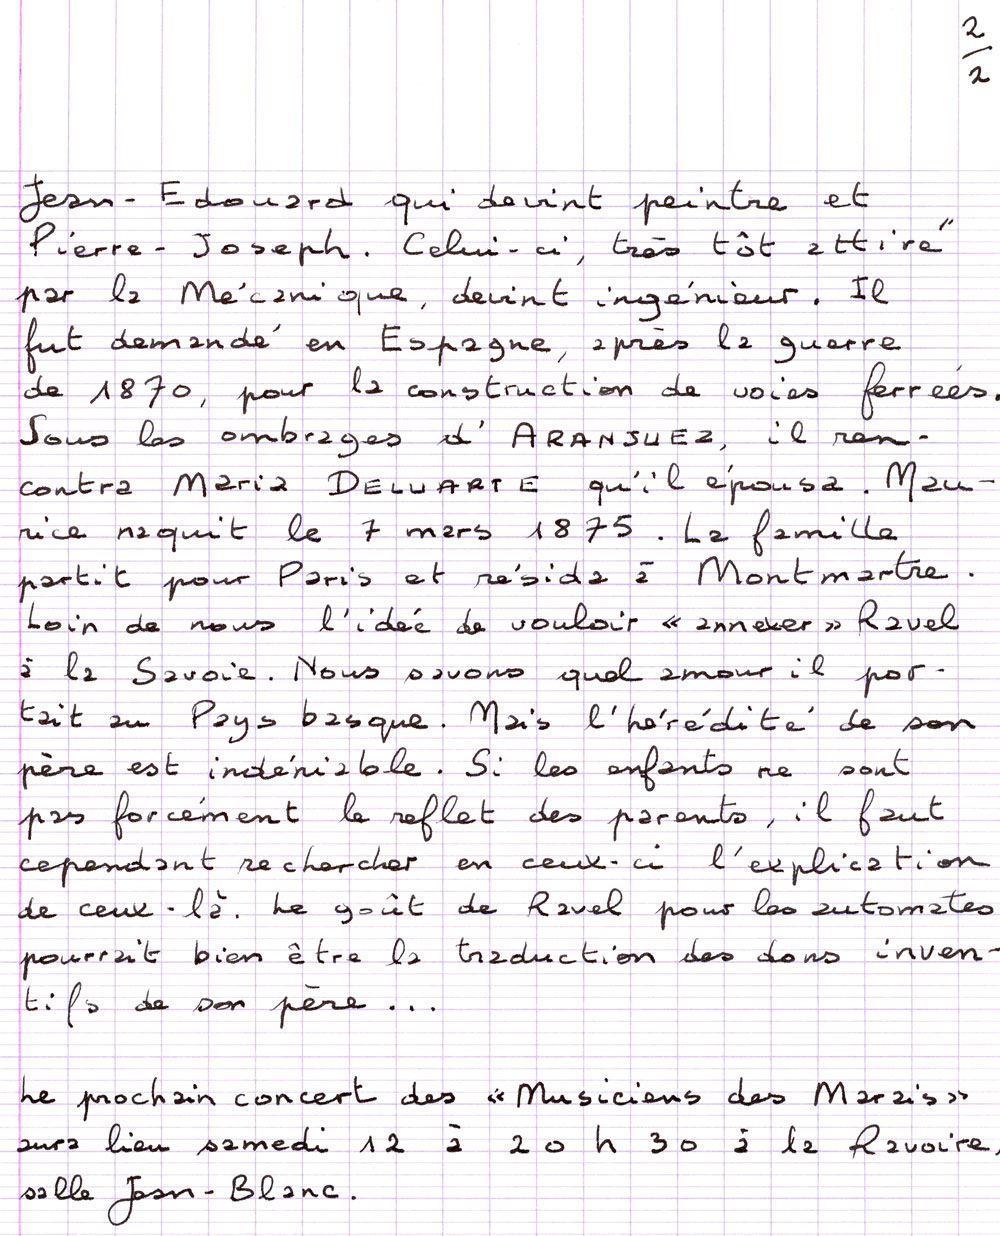 2
2
Jean-Edouard qui devint peintre et
Pierre-Joseph. Celui-ci, très tôt attiré
par la Mécanique, devint ingénieur. Il
fut demandé en Espagne, après la guerre
de 1870, pour la construction de voies ferrées.
Sous les ombrages d'ARANJUEZ, il ren-
contra Maria DELUARTE qu'il épousa. Mau-
rice naquit le 7 mars 1875. La famille
partit pour Paris et résida à Montmartre.
Loin de nous l'idée de vouloir « annexer » Ravel
à la Savoie. Nous savons quel amour il por-
tait au Pays basque. Mais l'hérédité de son
père est indéniable. Si les enfants ne sont
pas forcément le reflet des parents, il faut
cependant rechercher en ceux-ci l'explication
de ceux-là. Le goût de Ravel pour les automates
pourrait bien être la traduction des dons inven-
tifs de son père ...
Le prochain concert des « Musiciens des Marais »
aura lieu samedi 12 à 20 h 30 à la Ravoire,
salle Jean-Blanc.